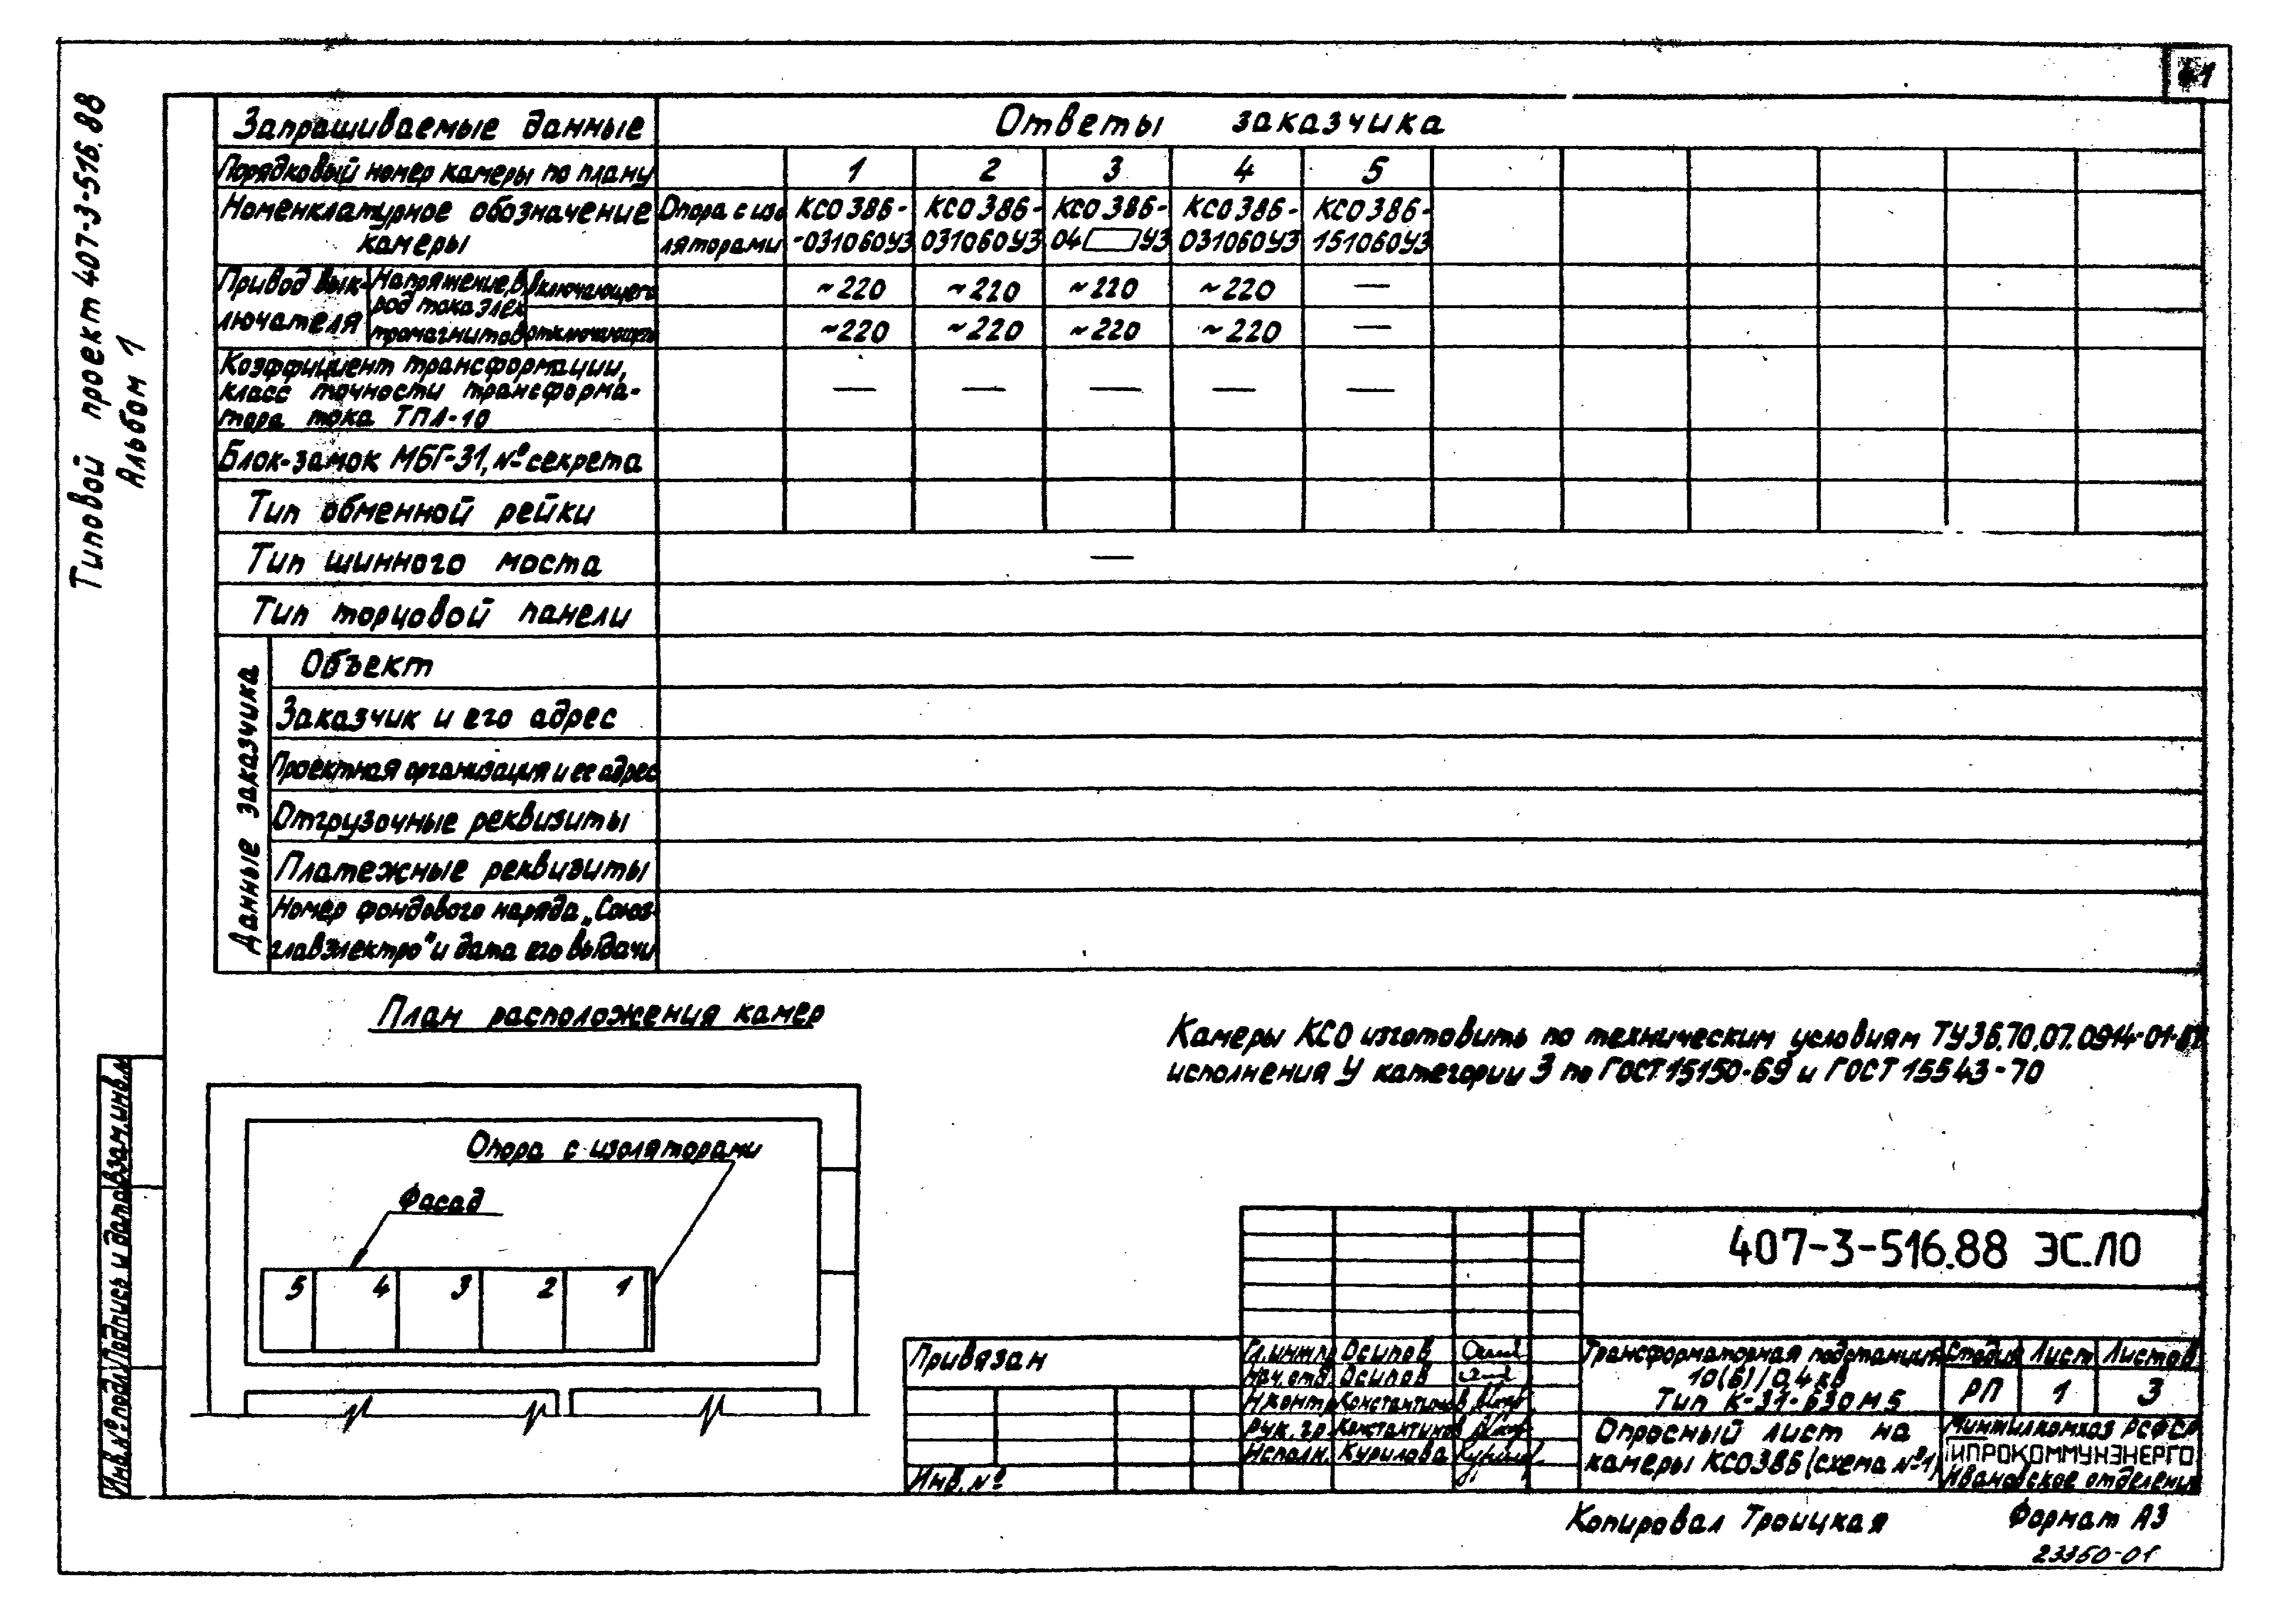 41
Типовой проект 407-3-516.88
Альбом 1
Запрашиваемые данные
Ответы заказчика
Порядковый номер камеры по плану
1 2 3 4 5
Номенклатурное обозначение
камеры
Опора с изо
ляторами
КСО 386-
-031060У3
КСО 386-
031060У3
КСО 386-
04 У3
КСО 386-
031060У3
КСО 386-
151060У3
Привод вык-
лючателя
Напряжение, В
род тока элек
тромагнитов
включающего
~220 ~220 ~220 ~220 —
отключающего
~220 ~220 ~220 ~220 —
Коэффициент трансформации,
класс точности трансформа-
тора тока ТПЛ-10
— — — — —
Блок-замок МБГ-31, № секрета
Тип обменной рейки
Тип шинного моста
—
Тип торцовой панели
Данные заказчика
Объект
Заказчик и его адрес
Проектная организация и ее адрес
Отгрузочные реквизиты
Платежные реквизиты
Номер фондового наряда „Союз-
главэлектро" и дата его выдачи
План расположения камер
Камеры КСО изготовить по техническим условиям ТУ36.70.07.0914-01-
исполнения У категории 3 по ГОСТ 15150-69 и ГОСТ 15543-70
Опора с изоляторами
Фасад
5 4 3 2 1
Инв.№ подл. Подпись и дата Взам.инв.№
407-3-516.88 ЭС.ЛО
Привязан
Инв. №
Гл.инж.пр. Осипов
Нач.отд. Осипов
Н.контр. Константинов
Рук.гр. Константинов
Исполн. Курилова
Трансформаторная подстанция
10(6)/0,4 кВ
Тип К-31-630М5
Стадия Лист Листов
РП 1 3
Опросный лист на
камеры КСО386 (схема №1)
Минжилкомхоз РСФСР
ГИПРОКОММУНЭНЕРГО
Ивановское отделение
Копировал Троицкая
Формат А3
23350-01